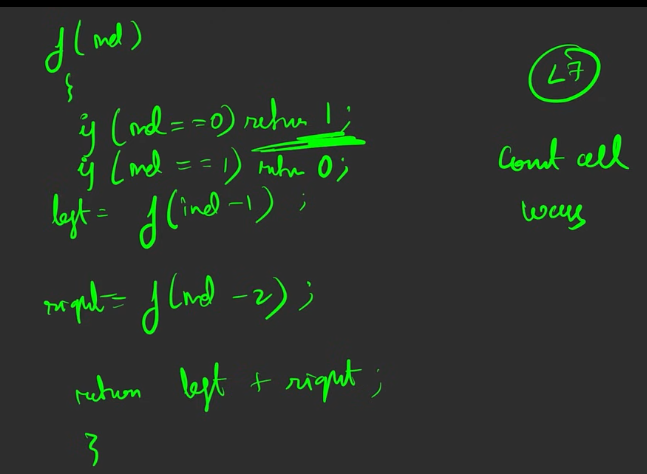 f(ind)
{
if (ind == 0) return 1;
if (ind == 1) return 0;
left = f(ind - 1);
right = f(ind - 2);
return left + right;
}
L7
Count all
ways